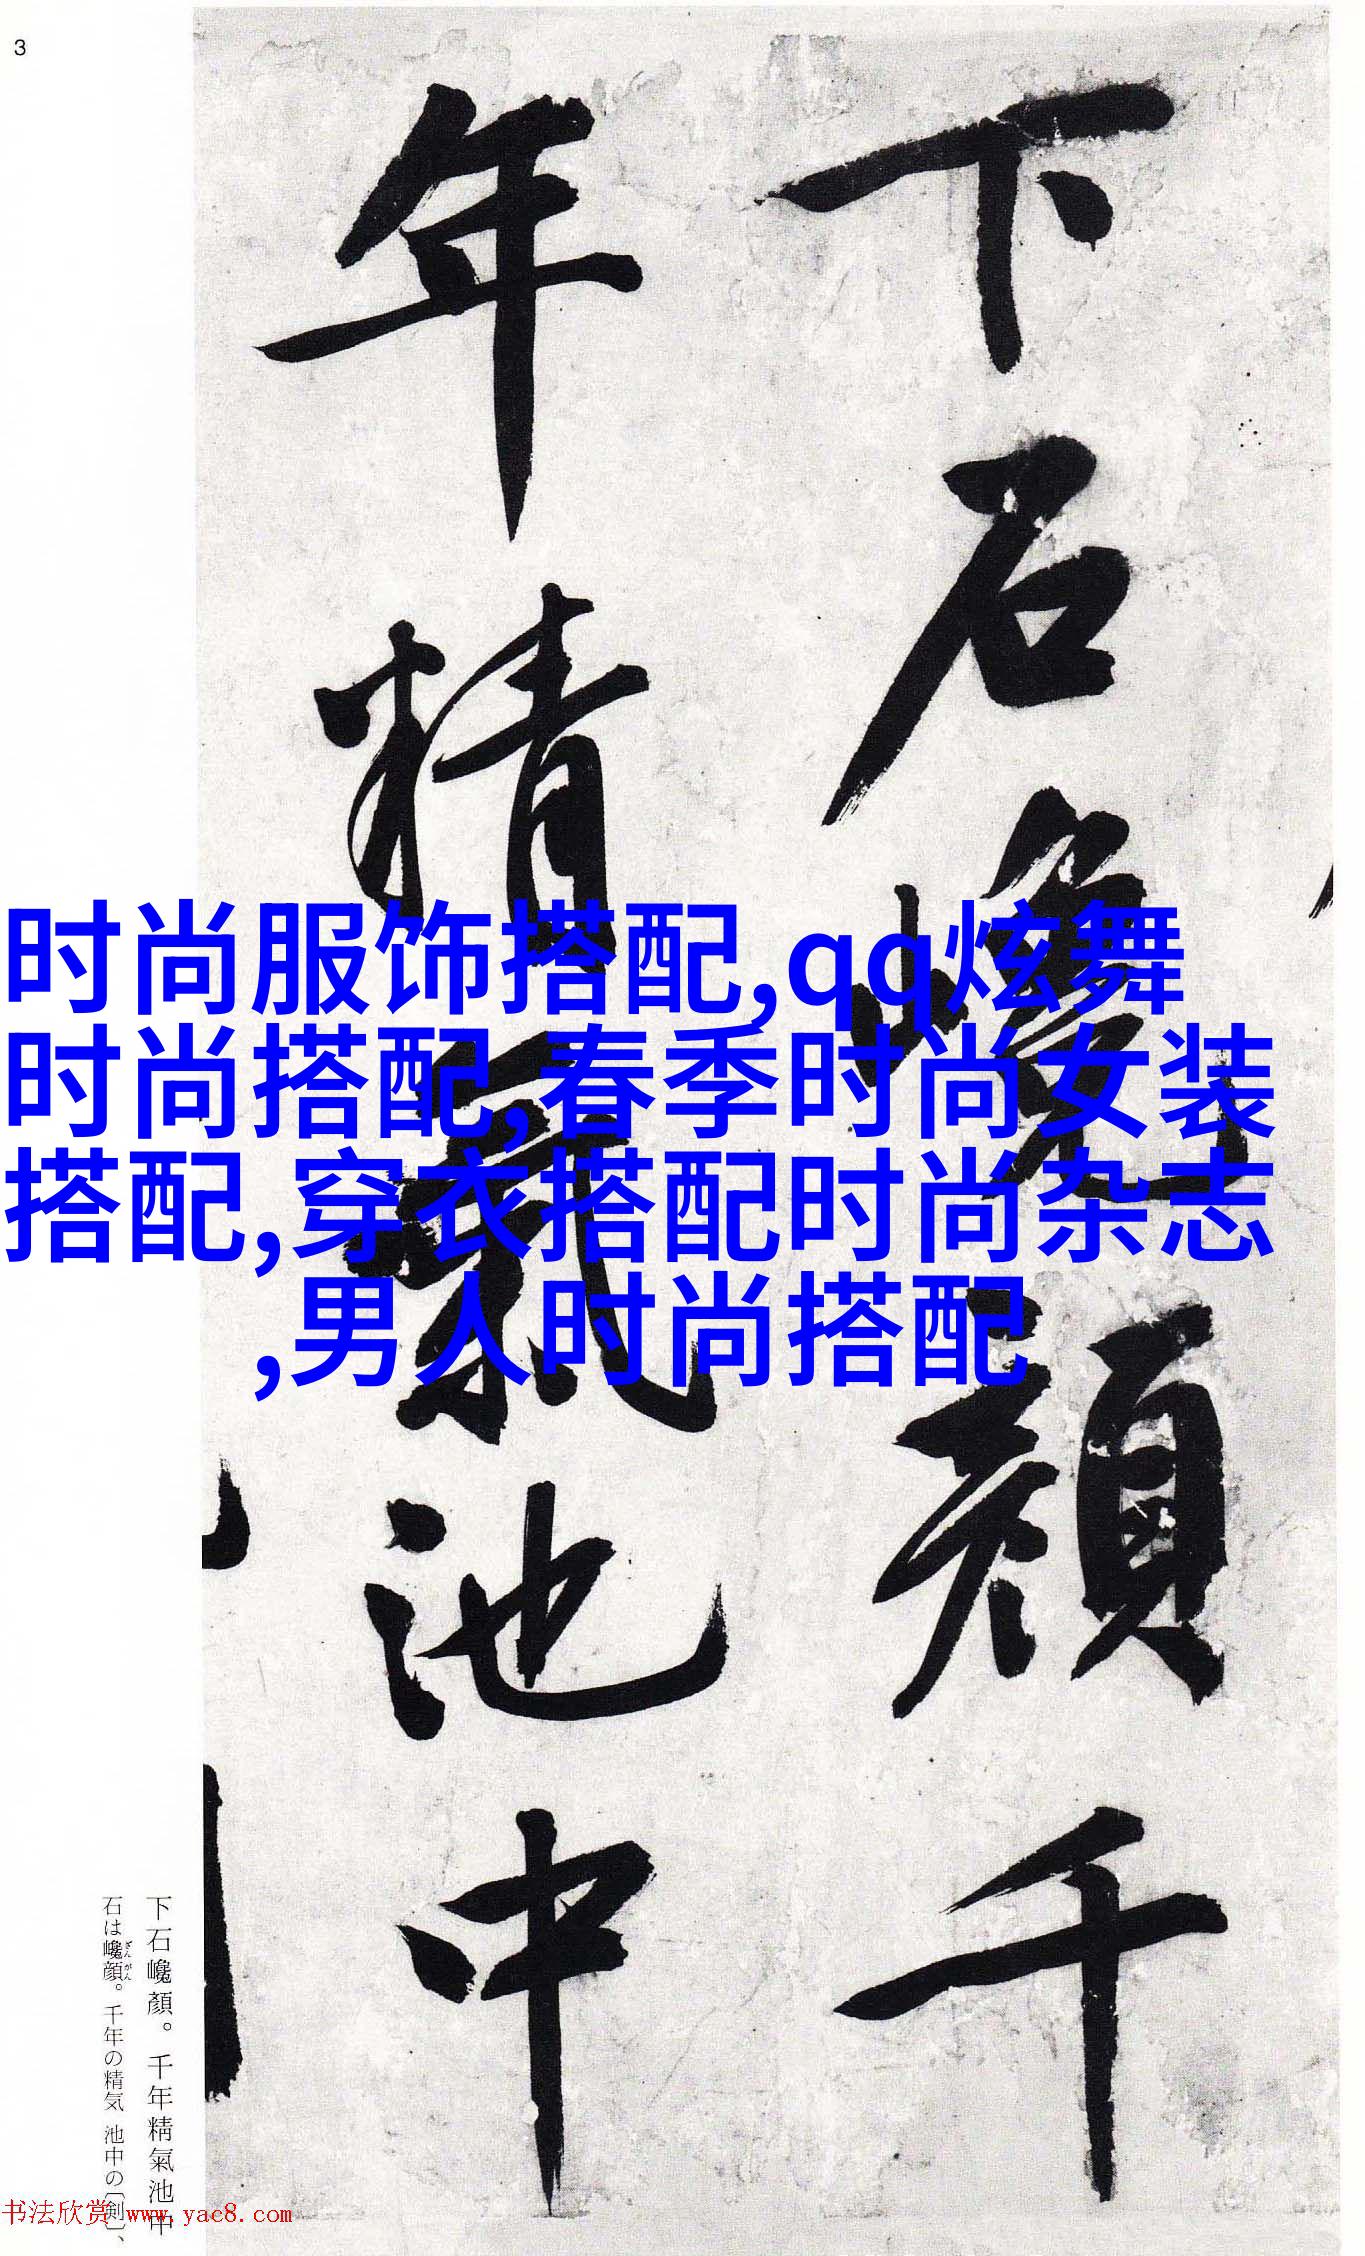 3
下石巉顏千
年精氣池中
时尚服饰搭配,qq炫舞
时尚搭配,春季时尚女装
搭配,穿衣搭配时尚杂志
,男人时尚搭配
下石巉顏。千年精氣池中
石は巉顔。千年の精気 池中の〔剣〕、
ざんがん
书法欣赏 www.yac8.com